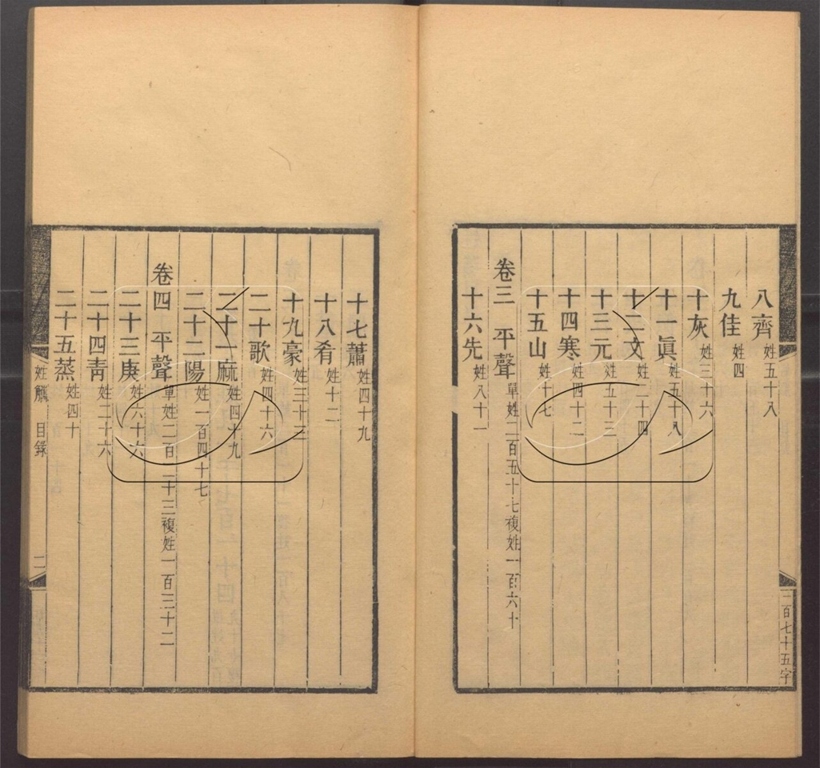 八齊姓五十八
九佳姓四
十灰姓三十六
十一眞姓五十八
十二文姓二十四
十三元姓五十三
十四寒姓四十二
十五山姓十七
卷三 平聲單姓二百五十七複姓一百六十
十六先姓八十一
二百七十五字
十七蕭姓四十九
十八肴姓十二
十九豪姓三十三
二十歌姓四十六
二十一麻姓四十九
二十二陽姓一百四十七
卷四 平聲單姓二百二十三複姓一百三十二
二十三庚姓六十六
二十四靑姓二十六
二十五蒸姓四十
姓觽 目錄 二